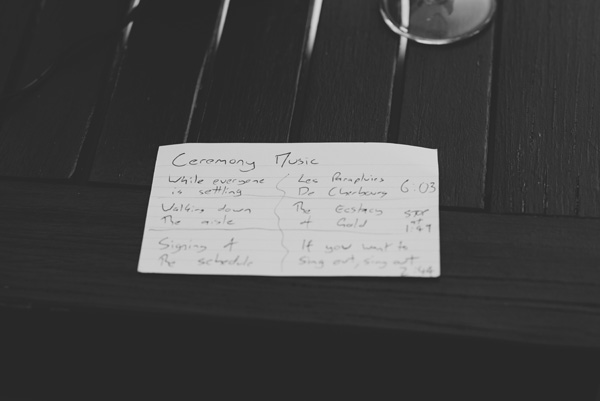 Ceremony Music
While everyone
is settling
Les Parapluies
De Cherbourg
6:03
Walking down
The aisle
The Ecstacy
of Gold
STOP
at
1:47
Signing of
The schedule
If you want to
sing out, sing out
2:44